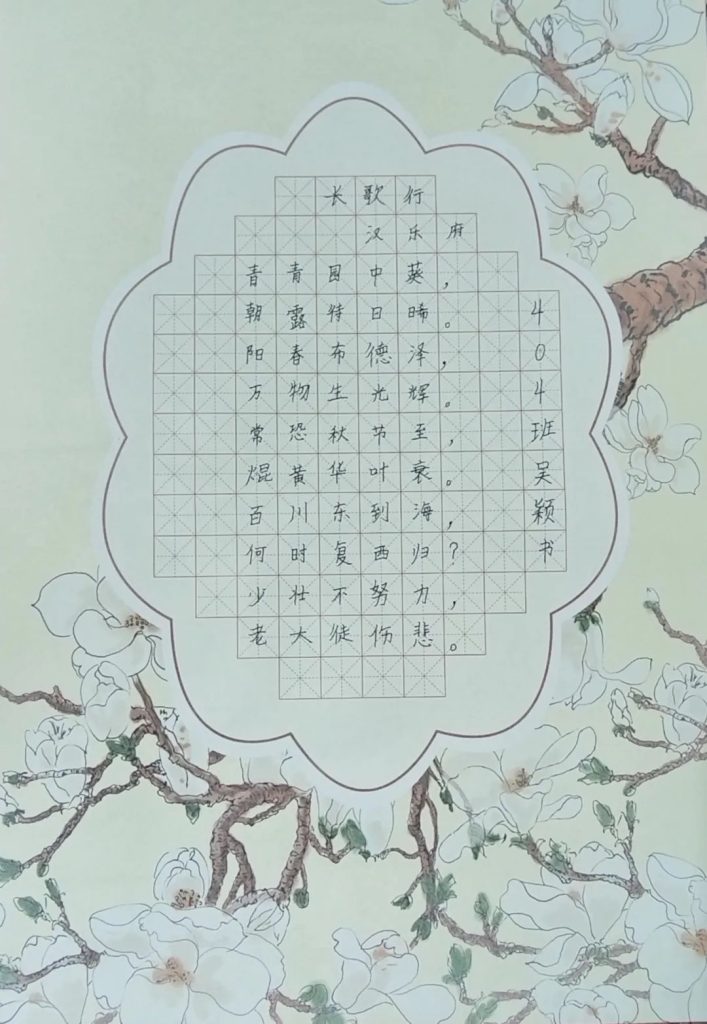 长歌行
汉乐府
青青园中葵，
朝露待日晞。
阳春布德泽，
万物生光辉。
常恐秋节至，
焜黄华叶衰。
百川东到海，
何时复西归？
少壮不努力，
老大徒伤悲。
404班吴颖书